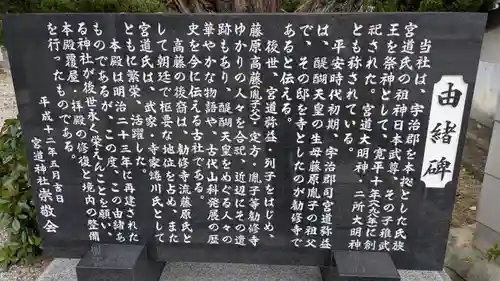 由緒碑
当社は、宇治郡を本拠とした氏族
宮道氏の祖神日本武尊、その子稚武
王を祭神として、寛平十年(八九八年)に創
祀された。宮道大明神、二所大明神
とも称されている。
平安時代初期、宇治郡司宮道弥益
は、醍醐天皇の生母藤原胤子の祖父
で、その邸を寺としたのが勧修寺で
あると伝える。
後世、宮道弥益、列子をはじめ、
藤原高藤(胤子父)、定方、胤子等勧修寺
ゆかりの人々を合祀、近辺にその遺
跡もあり、醍醐天皇をめぐる人々の
華やかな物語や、古代山科発展の歴
史を今に伝える古社である。
高藤の後裔は、勧修寺流藤原氏と
して朝廷で枢要な地位を占め、また
宮道氏は、武家、寺家蜷川氏として
ともに繁栄、活躍した。
本殿は明治二十三年に再建された
ものであるが、この度、この由緒あ
る神社が後世永く栄えんことを願い、
本殿覆屋・拝殿の修復と境内の整備
を行ったものである。
平成十二年五月吉日
宮道神社崇敬会